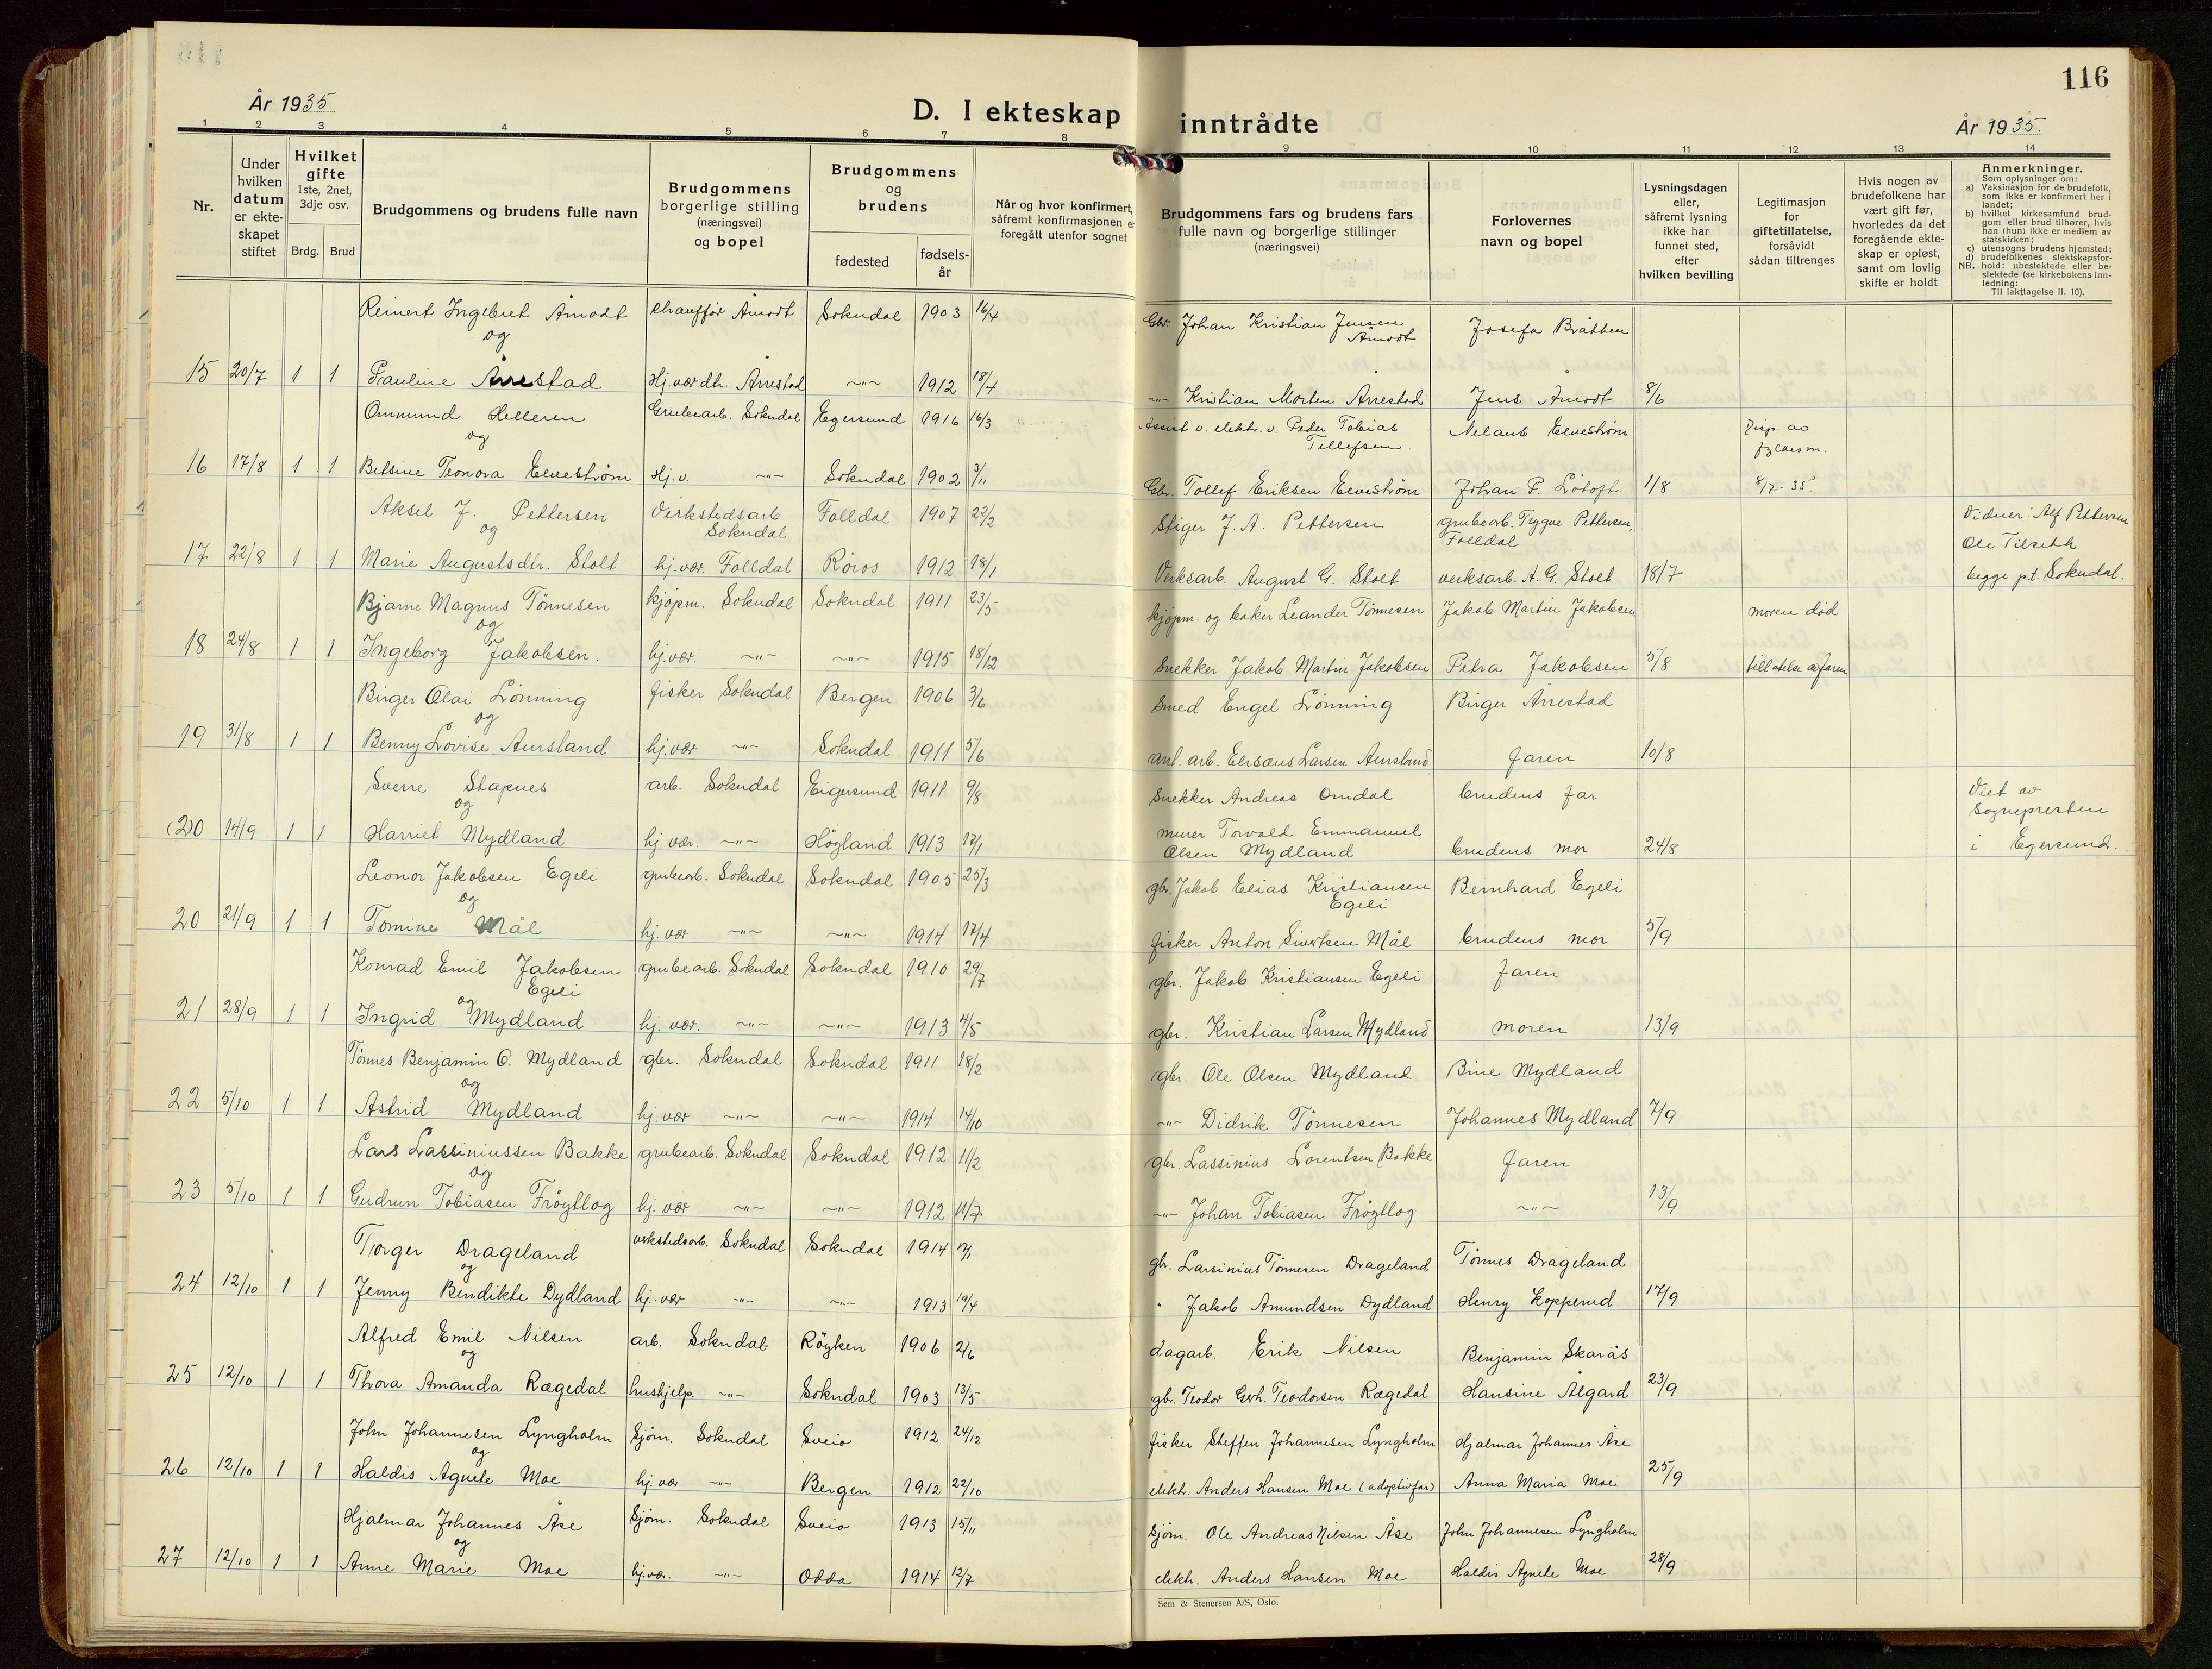 116
År 1935
D. I ekteskap inntrådte
År 1935.
1 2 3 4 5 6 7 8 9 10 11 12 13 14
Nr.
Under
hvilken
datum
er ekte-
skapet
stiftet
Hvilket
gifte
1ste, 2net,
3dje osv.
Brdg. Brud
Brudgommens og brudens fulle navn
Brudgommens
borgerlige stilling
(næringsvei)
og bopel
Brudgommens
og
brudens
fødested
fødsels-
år
Når og hvor konfirmert,
såfremt konfirmasjonen er
foregått utenfor sognet
Brudgommens fars og brudens fars
fulle navn og borgerlige stillinger
(næringsvei)
Forlovernes
navn og bopel
Lysningsdagen
eller,
såfremt lysning
ikke har
funnet sted,
efter
hvilken bevilling
Legitimasjon
for
giftetillatelse,
forsåvidt
sådan tiltrenges
Hvis nogen av
brudefolkene har
vært gift før,
hvorledes da det
foregående ekte-
skap er opløst,
samt om lovlig
skifte er holdt
Anmerkninger.
Som oplysninger om:
a) Vaksinasjon for de brudefolk,
som ikke er konfirmert her i
landet;
b) hvilket kirkesamfund brud-
gom eller brud tilhører, hvis
han (hun) ikke er medlem av
statskirken;
c) utensogns brudens hjemsted;
d) brudefolkenes slektskapsfor-
NB. hold: ubeslektede eller be-
slektede (se kirkebokens inn-
ledning:
Til iakttagelse II. 10).
Reinert Ingebret Åmodt chauffør Åmodt Sokndal 1903 16/4 Gbr. Johan Kristian Jensen Åmodt Josefa Bråtten
og
15 20/7 1 1 Pauline Årrestad Hj.vær dh. Årrestad -"- 1912 18/4 -"- Kristian Morten Årrestad Jens Åmodt 8/6
Ommund Helleren Grubearb. Sokndal Egersund 1916 16/3 Assist v. elektr. v. Peder Tobias Tellefsen. Nilaus Elveström Disp. av fylkesm.
og
16 17/8 1 1 Betsine Teonora Elveström Hj.v. -"- Sokndal 1902 3/11 Gbr. Tollef Eriksen Elveström Johan P. Lötoft 1/8 8/7-35
Aksel J. Pettersen Verkstedsarb Sokndal Folldal 1907 22/2 Stiger J. A. Pettersen grubearb. Trygve Pettersen, Folldal Vidner: Alf Pettersen
og
Ole Tilseth
17 22/8 1 1 Marie Augustsdtr. Stolt hj.vær. Folldal Røros 1912 18/1 Verksarb. August G. Stolt verksarb. A. G. Stolt 18/7 begge p.t. Sokndal.
Bjarne Magnus Tönnesen kjøpm. Sokndal Sokndal 1911 23/5 kjøpm. og baker Leander Tönnesen Jakob Martin Jakobsen moren död
og
18 24/8 1 1 Ingeborg Jakobsen. hj.vær. -"- -"- 1915 18/12 Snekker Jakob Martin Jakobsen Petra Jakobsen 5/8 tillatelse av faren
Birger Olai Lönning fisker Sokndal Bergen 1906 3/6 Smed Engel Lönning Birger Årrestad
og
19 31/8 1 1 Benny Lovise Aursland hj.vær -"- Sokndal 1911 5/6 anl. arb. Elisæus Larsen Aursland Faren 10/8
Sverre Stapnes arb. Sokndal Eigersund 1911 9/8 Snekker Andreas Omdal brudens far Viet av
og
sognepresten
(2)0 14/9 1 1 Harriet Mydland hj.vær. -"- Högland 1913 17/1 murer Torvald Emmanuel Olsen Mydland brudens mor 24/8 i Egersund.
Leonor Jakobsen Egeli grubearb. Sokndal Sokndal 1905 25/3 gbr. Jakob Elias Kristiansen Egeli Bernhard Egeli
og
20 21/9 1 1 Tomine Mål hj.vær -"- -"- 1914 17/4 fisker Anton Sivertsen Mål brudens mor 5/9
Konrad Emil Jakobsen Egeli grubearb. Sokndal Sokndal 1910 29/7 gbr. Jakob Kristiansen Egeli Faren
og
21 28/9 1 1 Ingrid Mydland hj.vær. -"- -"- 1913 4/5 gbr. Kristian Larsen Mydland moren 13/9
Tönnes Benjamin O. Mydland gbr. Sokndal Sokndal 1911 18/2 gbr. Ole Olsen Mydland Bine Mydland
og
22 5/10 1 1 Astrid Mydland hj.vær -"- -"- 1914 14/10 -"- Didrik Tönnesen Johannes Mydland 7/9
Lars Lassiniussen Bakke grubearb. Sokndal Sokndal 1912 11/2 gbr. Lassinius Lorentsen Bakke Faren
og
23 5/10 1 1 Gudrun Tobiasen Fröytlog hj.vær -"- -"- 1912 11/7 -"- Johan Tobiasen Fröytlog -"- 13/9
Torger Drageland verkstedsarb. Sokndal Sokndal 1914 gbr. Larsinius Tönnesen Drageland Tönnes Drageland
og
24 12/10 1 1 Jenny Bendikte Dydland hj.vær -"- -"- 1913 19/4 " Jakob Amundsen Dydland Henry Kopperud 17/9
Alfred Emil Nilsen arb. Sokndal Röyken 1906 2/6 dagarb. Erik Nilsen Benjamin Skarås
og
25 12/10 1 1 Thora Amanda Rægedal hushjelp. -"- Sokndal 1903 13/5 gbr. Teodor Gerh. Teodorsen Rægedal Hansine Ålgard 23/9
John Johannesen Lyngholm Sjöm. Sokndal Sveio 1912 24/12 fisker Steffen Johannesen Lyngholm Hjalmar Johannes Åse
og
26 12/10 1 1 Haldis Agnete Moe hj.vær -"- Bergen 1912 22/10 elektr. Anders Hansen Moe (adoptivfar) Anna Maria Moe 25/9
Hjalmar Johannes Åse Sjöm. Sokndal Sveio 1913 15/11 Sjöm. Ole Andreas Nilsen Åse John Johannesen Lyngholm
og
27 12/10 1 1 Anne Marie Moe hj.vær. -"- Odda 1914 12/7 elektr. Anders Hansen Moe Haldis Agnete Moe 28/9
Sem & Stenersen A/S, Oslo.